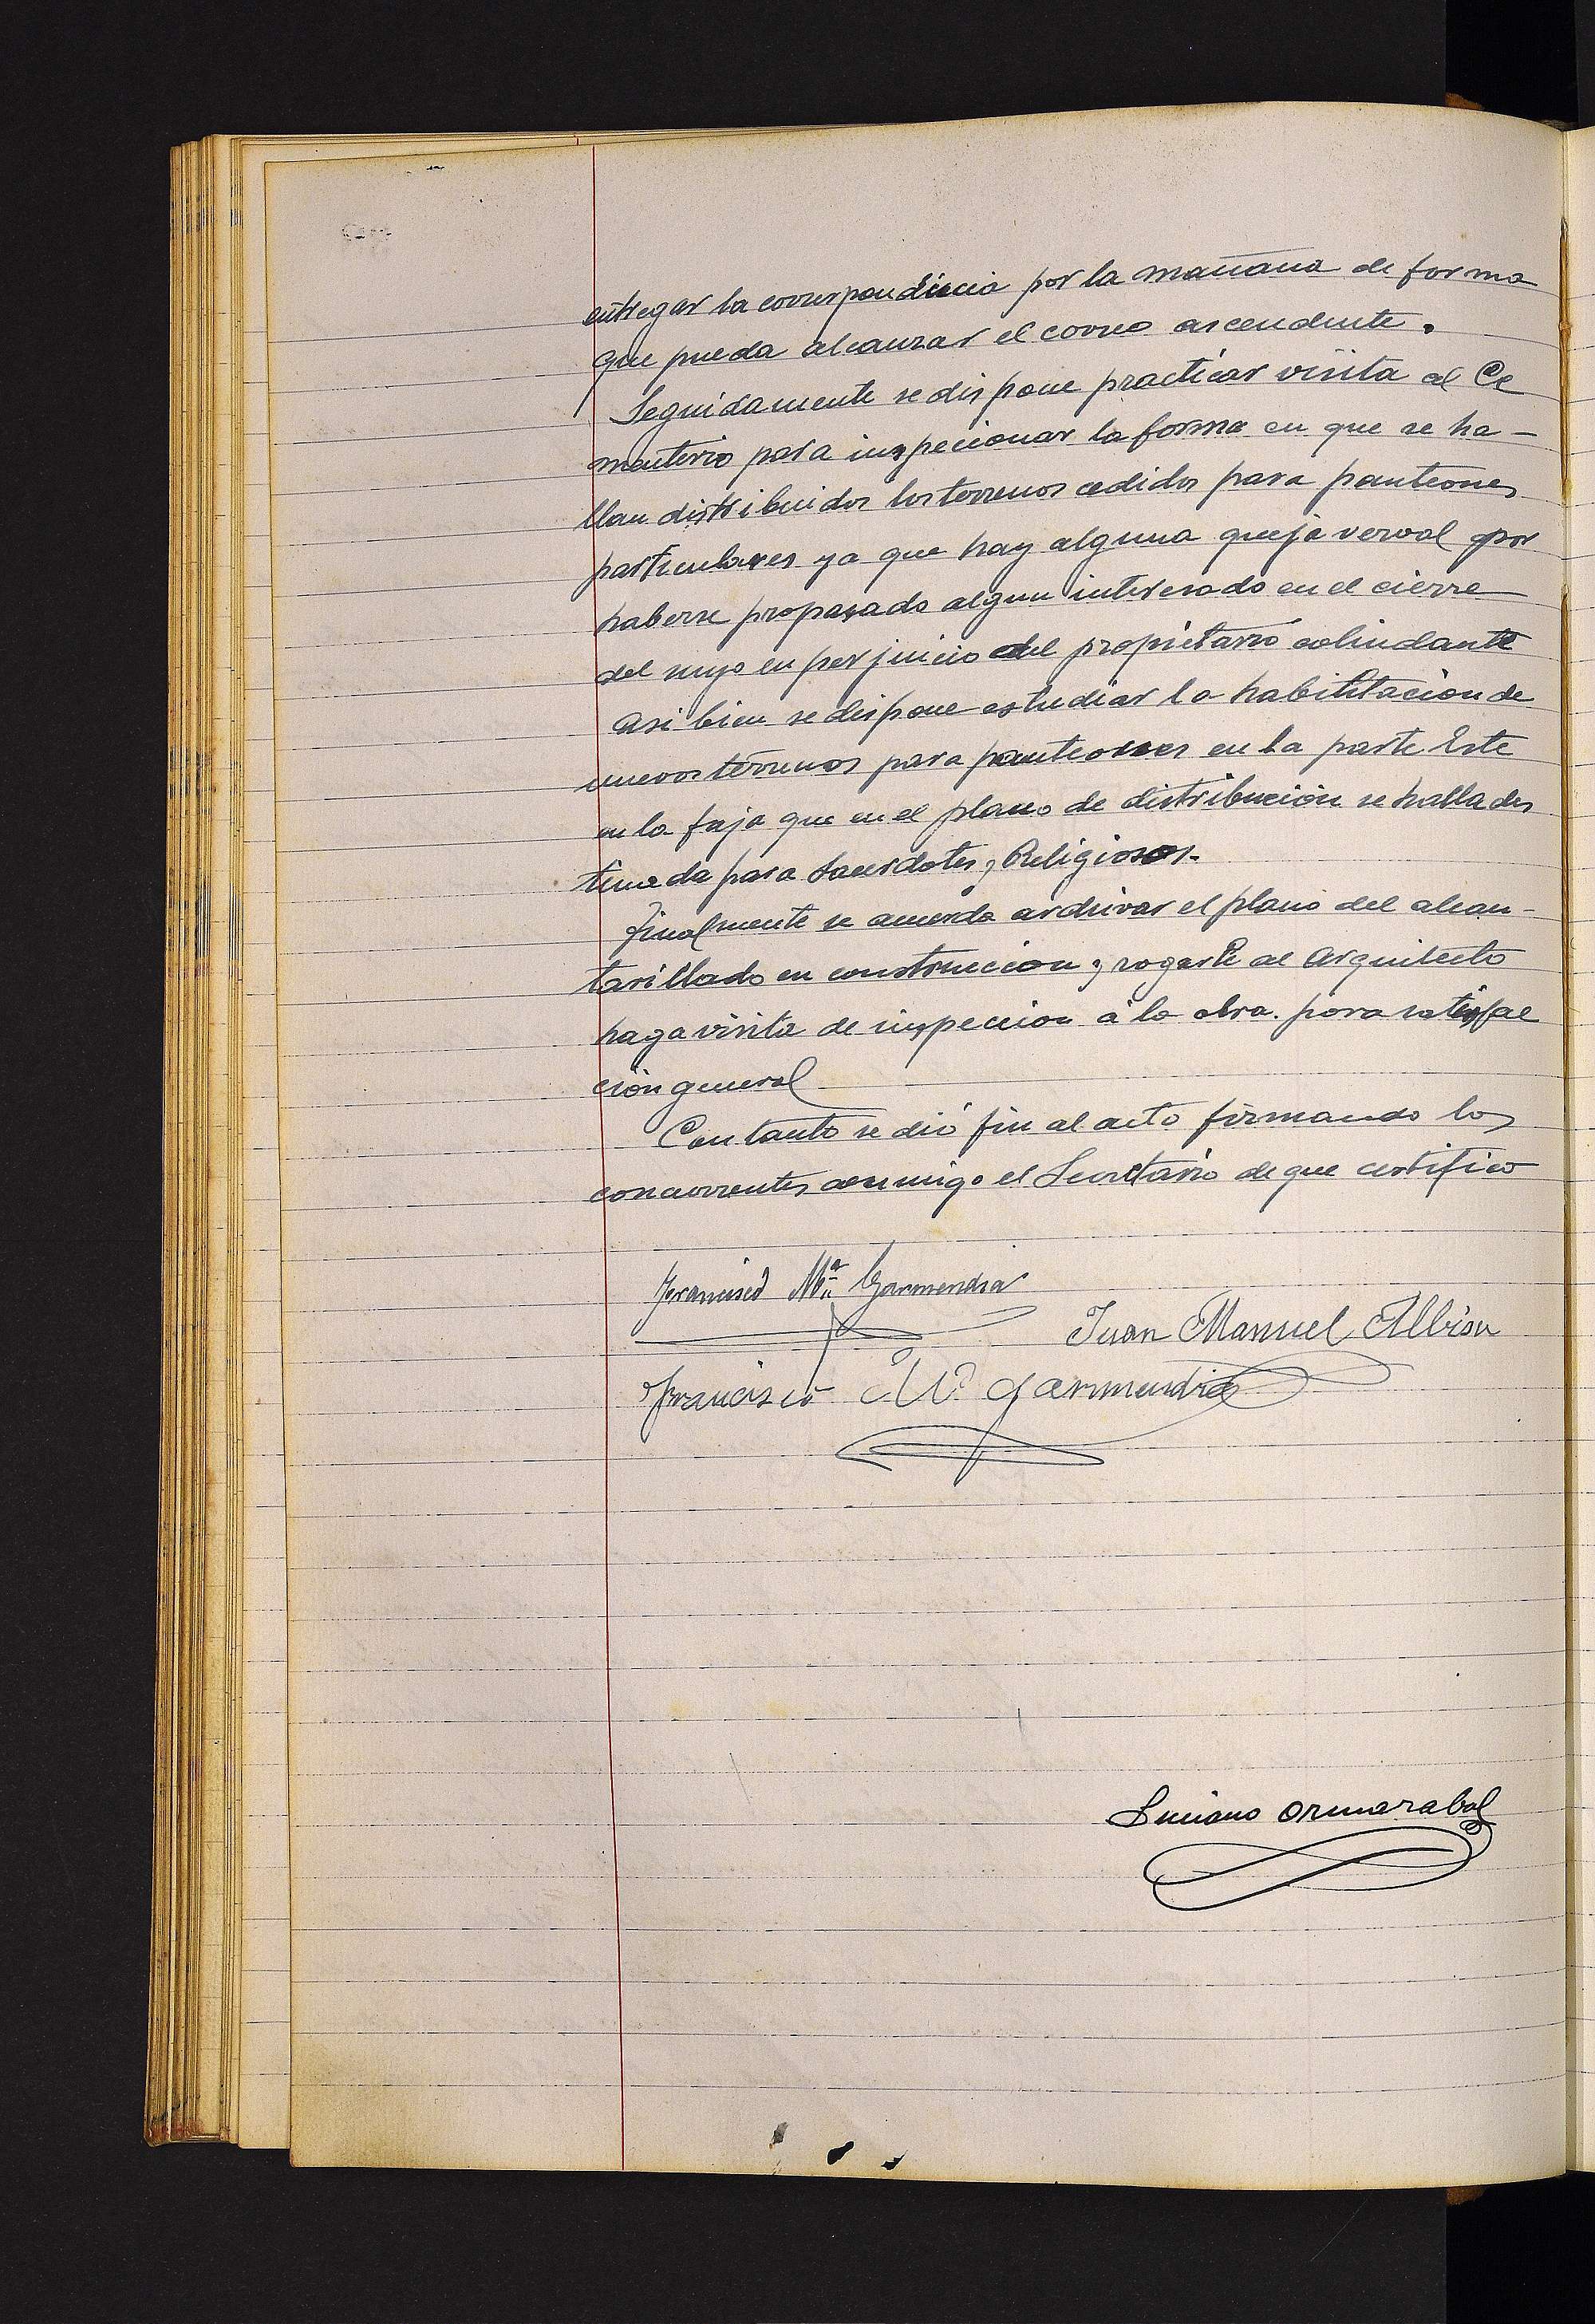 entregar la correspondencia por la mañana de forma
que pueda alcanzar el correo ascendente.
Seguidamente se dispone practicar visita al Ce
menterio para inspecionar la forma en que se ha-
llan distribuidos los terrenos cedidos para panteones
particulares ya que hay alguna queja verval por
haberse propasado algun interesado en el cierre
del suyo en perjuicio del propietario colindante
Asi bien se dispone estudiar la habilitacion de
nuevos terrenos para panteones en la parte Este
en la faja que en el plano de distribución se halla des
tinada para Sacerdotes y Religiosos.
Finalmente se acuerda archivar el plano del alcan-
tarillado en construccion y rogarle al Arquitecto
haga visita de inspeccion á la obra. para satisfac
ción general
Con tanto se dió fin al acto firmando los
concurrentes conmigo el Secretario de que certifico
Francisco Mª Garmendia
Juan Manuel Albisu
Francisco Mª Garmendia
Luciano Ormazabal